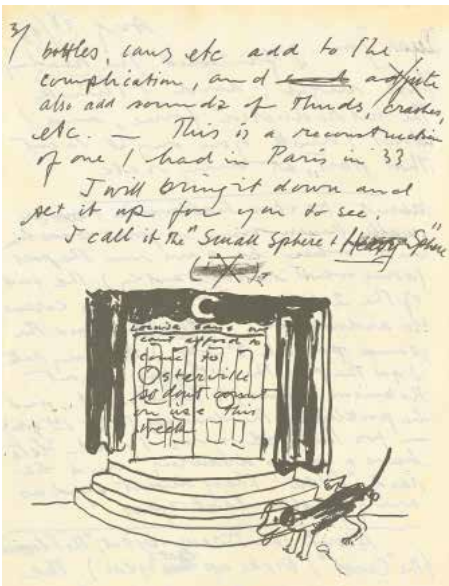 3/
bottles, cans etc add to the
complication, and
also add sounds of thuds, crashes,
etc. — This is a reconstruction
of one I had in Paris in 33
I will bring it down and
set it up for you to see.
I call it the "Small Sphere & Heavy Sphere"
C
Louisa says we
cant afford to
come to
Osterville
so dont count
on us this
week